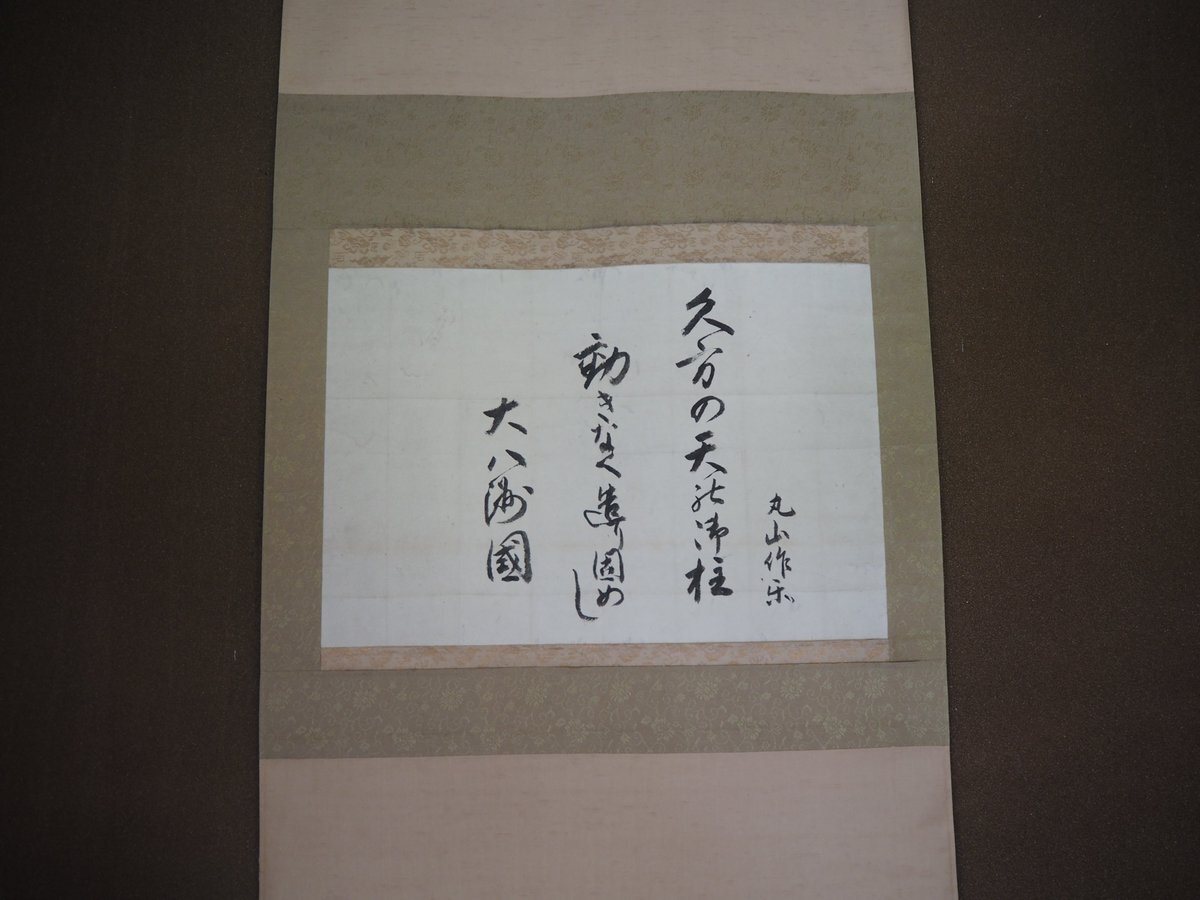 丸山作楽
久方の天の御柱
動きなく造り固めし
大八洲國